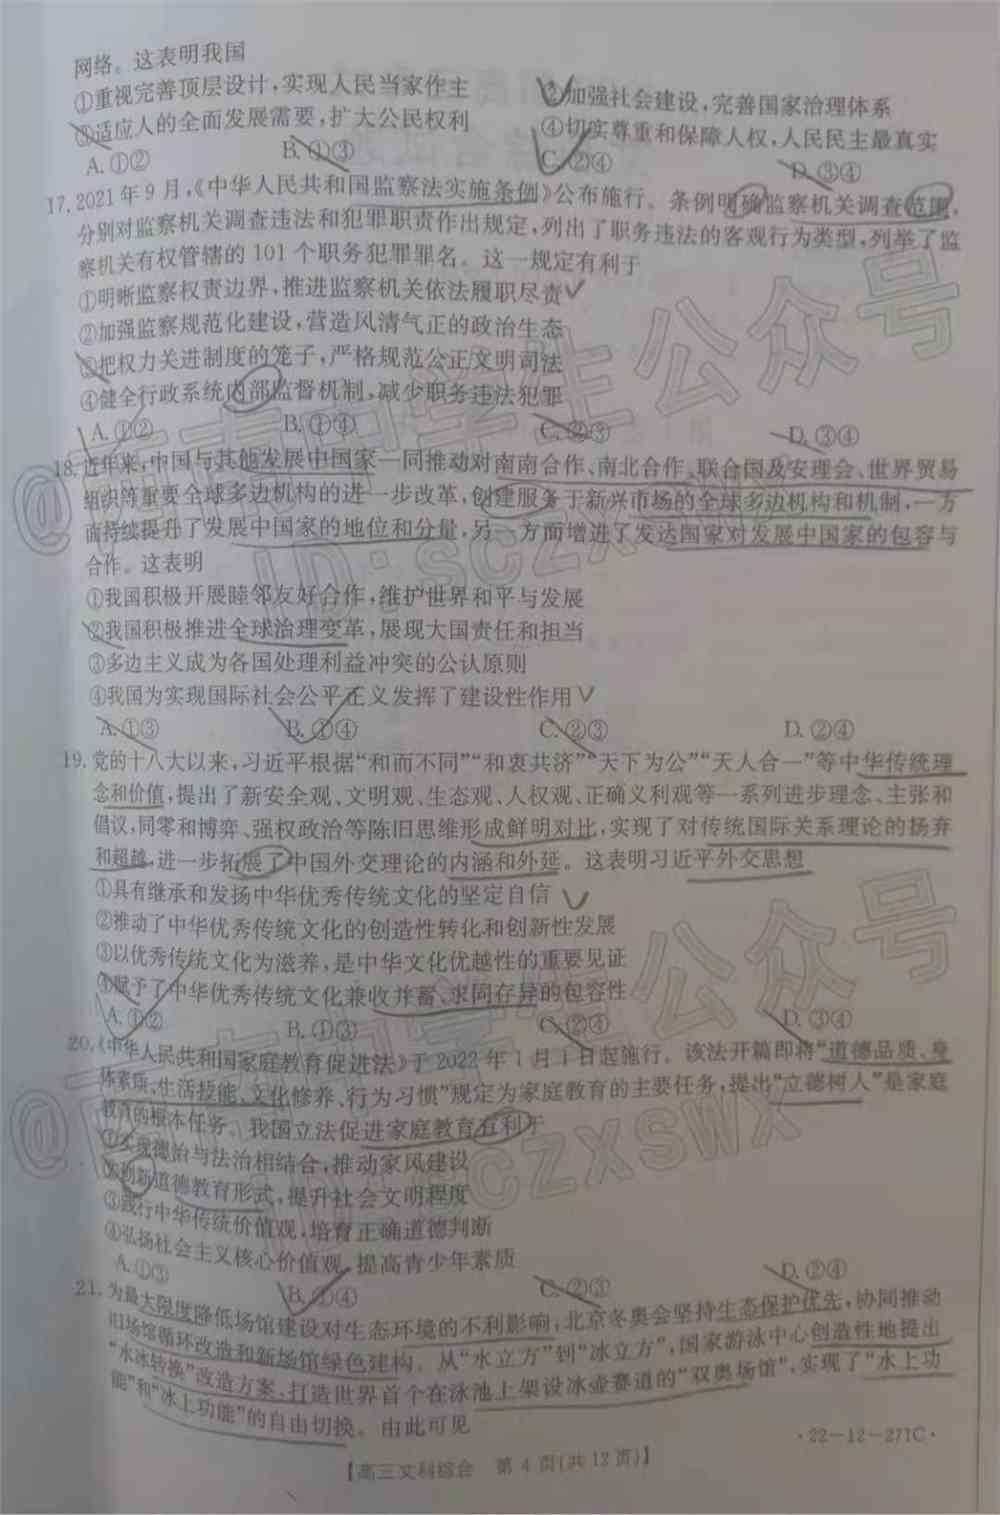 网络。这表明我国
①重视完善顶层设计,实现人民当家作主 ②加强社会建设,完善国家治理体系
③适应人的全面发展需要,扩大公民权利 ④切实尊重和保障人权,人民民主最真实
A.①② B.①③ C.②④ D.③④
17.2021年9月,《中华人民共和国监察法实施条例》公布施行。条例明确监察机关调查范围,
分别对监察机关调查违法和犯罪职责作出规定,列出了职务违法的客观行为类型,列举了监
察机关有权管辖的101个职务犯罪罪名。这一规定有利于
①明晰监察权责边界,推进监察机关依法履职尽责
②加强监察规范化建设,营造风清气正的政治生态
③把权力关进制度的笼子,严格规范公正文明司法
④健全行政系统内部监督机制,减少职务违法犯罪
A.①② B.①④ C.②③ D.③④
18.近年来,中国与其他发展中国家一同推动对南南合作、南北合作、联合国及安理会、世界贸易
组织等重要全球多边机构的进一步改革,创建服务于新兴市场的全球多边机构和机制,一方
面持续提升了发展中国家的地位和分量,另一方面增进了发达国家对发展中国家的包容与
合作。这表明
①我国积极开展睦邻友好合作,维护世界和平与发展
②我国积极推进全球治理变革,展现大国责任和担当
③多边主义成为各国处理利益冲突的公认原则
④我国为实现国际社会公平正义发挥了建设性作用
A.①③ B.①④ C.②③ D.②④
19.党的十八大以来,习近平根据“和而不同”“和衷共济”“天下为公”“天人合一”等中华传统理
念和价值,提出了新安全观、文明观、生态观、人权观、正确义利观等一系列进步理念、主张和
倡议,同零和博弈、强权政治等陈旧思维形成鲜明对比,实现了对传统国际关系理论的扬弃
和超越,进一步拓展了中国外交理论的内涵和外延。这表明习近平外交思想
①具有继承和发扬中华优秀传统文化的坚定自信
②推动了中华优秀传统文化的创造性转化和创新性发展
③以优秀传统文化为滋养,是中华文化优越性的重要见证
④赋予了中华优秀传统文化兼收并蓄、求同存异的包容性
A.①② B.①③ C.②④ D.③④
20.《中华人民共和国家庭教育促进法》于2022年1月1日起施行。该法开篇即将“道德品质、身
体素质、生活技能、文化修养、行为习惯”规定为家庭教育的主要任务,提出“立德树人”是家庭
教育的根本任务。我国立法促进家庭教育有利于
①实现德治与法治相结合,推动家风建设
②创新道德教育形式,提升社会文明程度
③践行中华传统价值观,培育正确道德判断
④弘扬社会主义核心价值观,提高青少年素质
A.①③ B.①④ C.②③ D.②④
21.为最大限度降低场馆建设对生态环境的不利影响,北京冬奥会坚持生态保护优先,协同推动
旧场馆循环改造和新场馆绿色建构。从“水立方”到“冰立方”,国家游泳中心创造性地提出
“水冰转换”改造方案,打造世界首个在泳池上架设冰壶赛道的“双奥场馆”,实现了“水上功
能”和“冰上功能”的自由切换。由此可见
【高三文科综合 第4页(共12页)】 ·22-12-277C·